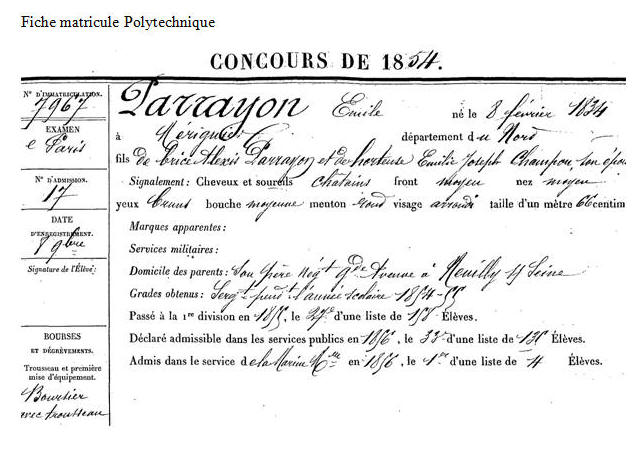 Fiche matricule Polytechnique
CONCOURS DE 1854.
N° D'IMMATRICULATION.
7967
EXAMEN
de Paris
N° D'ADMISSION.
17
DATE
D'ENREGISTREMENT.
8 9bre
Signature de l'Élève:
BOURSES
ET DÉGRÈVEMENTS.
Trousseau et première
mise d'équipement.
Boursier
avec trousseau
Parrayon Emile né le 8 février 1834
à département du Nord
fils de Brice Alexis Parrayon et de hortense Emilie Joseph Champon, son épouse
Signalement: Cheveux et sourcils chatains front moyen nez moyen
yeux bruns bouche moyenne menton rond visage arrondi taille d'un mètre 66 centim
Marques apparentes:
Services militaires:
Domicile des parents: Son père négt gde Avenue à Neuilly s/ Seine
Grades obtenus: Sergt pendt l'année scolaire 1854-55
Passé à la 1re division en 1855, le 27e d'une liste de 158 Élèves.
Déclaré admissible dans les services publics en 1856, le 33e d'une liste de Élèves.
Admis dans le service de la Marine Mlle en 1856, le 1er d'une liste de 4 Élèves.